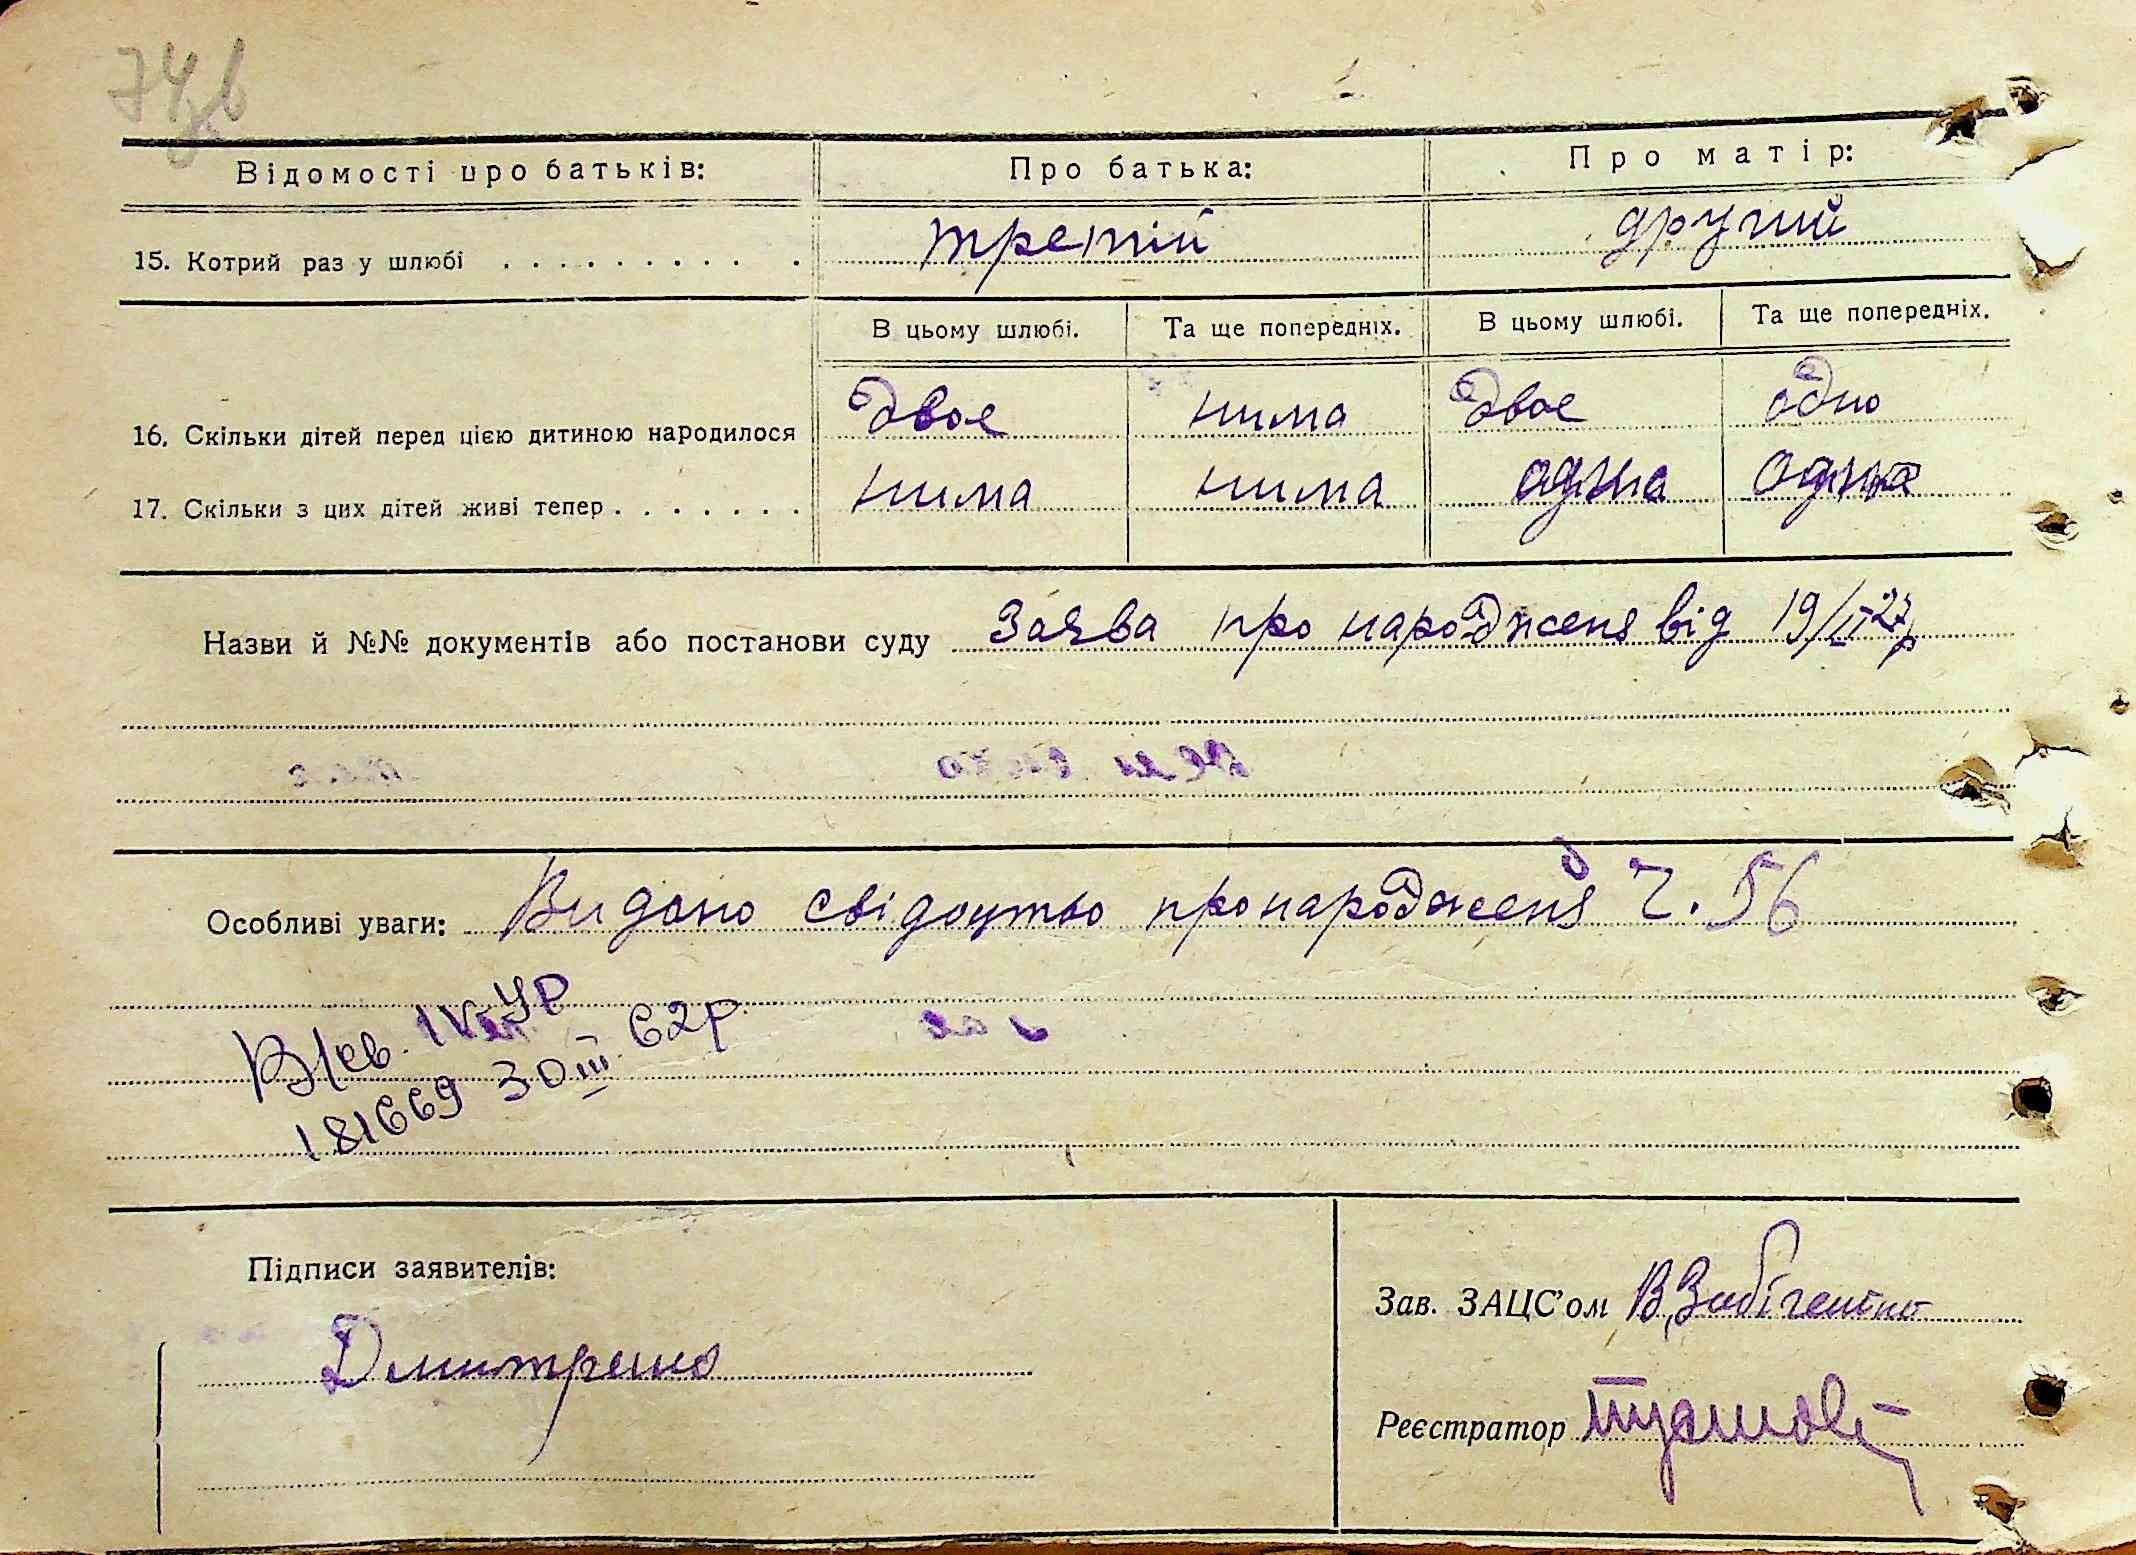 74зв
Відомості про батьків: Про батька: Про матір:
15. Котрий раз у шлюбі . . . . . . . . . . третій другий
В цьому шлюбі. Та ще попередніх. В цьому шлюбі. Та ще попередніх.
16. Скільки дітей перед цією дитиною народилося двоє нима двоє одно
17. Скільки з цих дітей живі тепер . . . . . . . нима нима одна одна
Назви й №№ документів або постанови суду Заява про народженя від 19/II 27р
Особливі уваги: Видано свідоцтво про народженя Ч. 56
В/св. IV УР
181669 30 III 62р.
Підписи заявителів:
Дмитренко
Зав. ЗАЦС'ом В.
Реєстратор